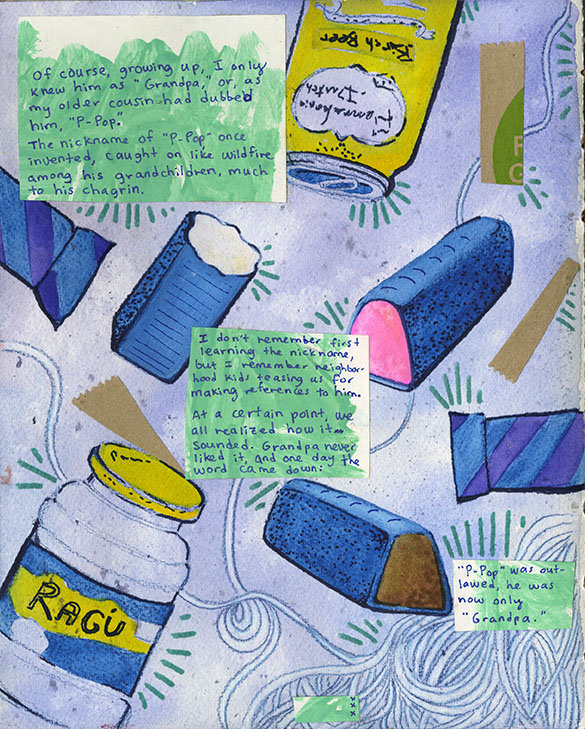 Of course, growing up, I only
knew him as "Grandpa," or, as
my older cousin had dubbed
him, "P-Pop."
The nickname of "P-Pop" once
invented, caught on like wildfire
among his grandchildren, much
to his chagrin.
Birch Beer
Dutch
I don't remember first
learning the nickname,
but I remember neighbor-
hood kids teasing us for
making references to him.
At a certain point, we
all realized how it
sounded. Grandpa never
liked it, and one day the
word came down:
RAGÚ
"P-Pop" was out-
lawed, he was
now only
"Grandpa."
xxx